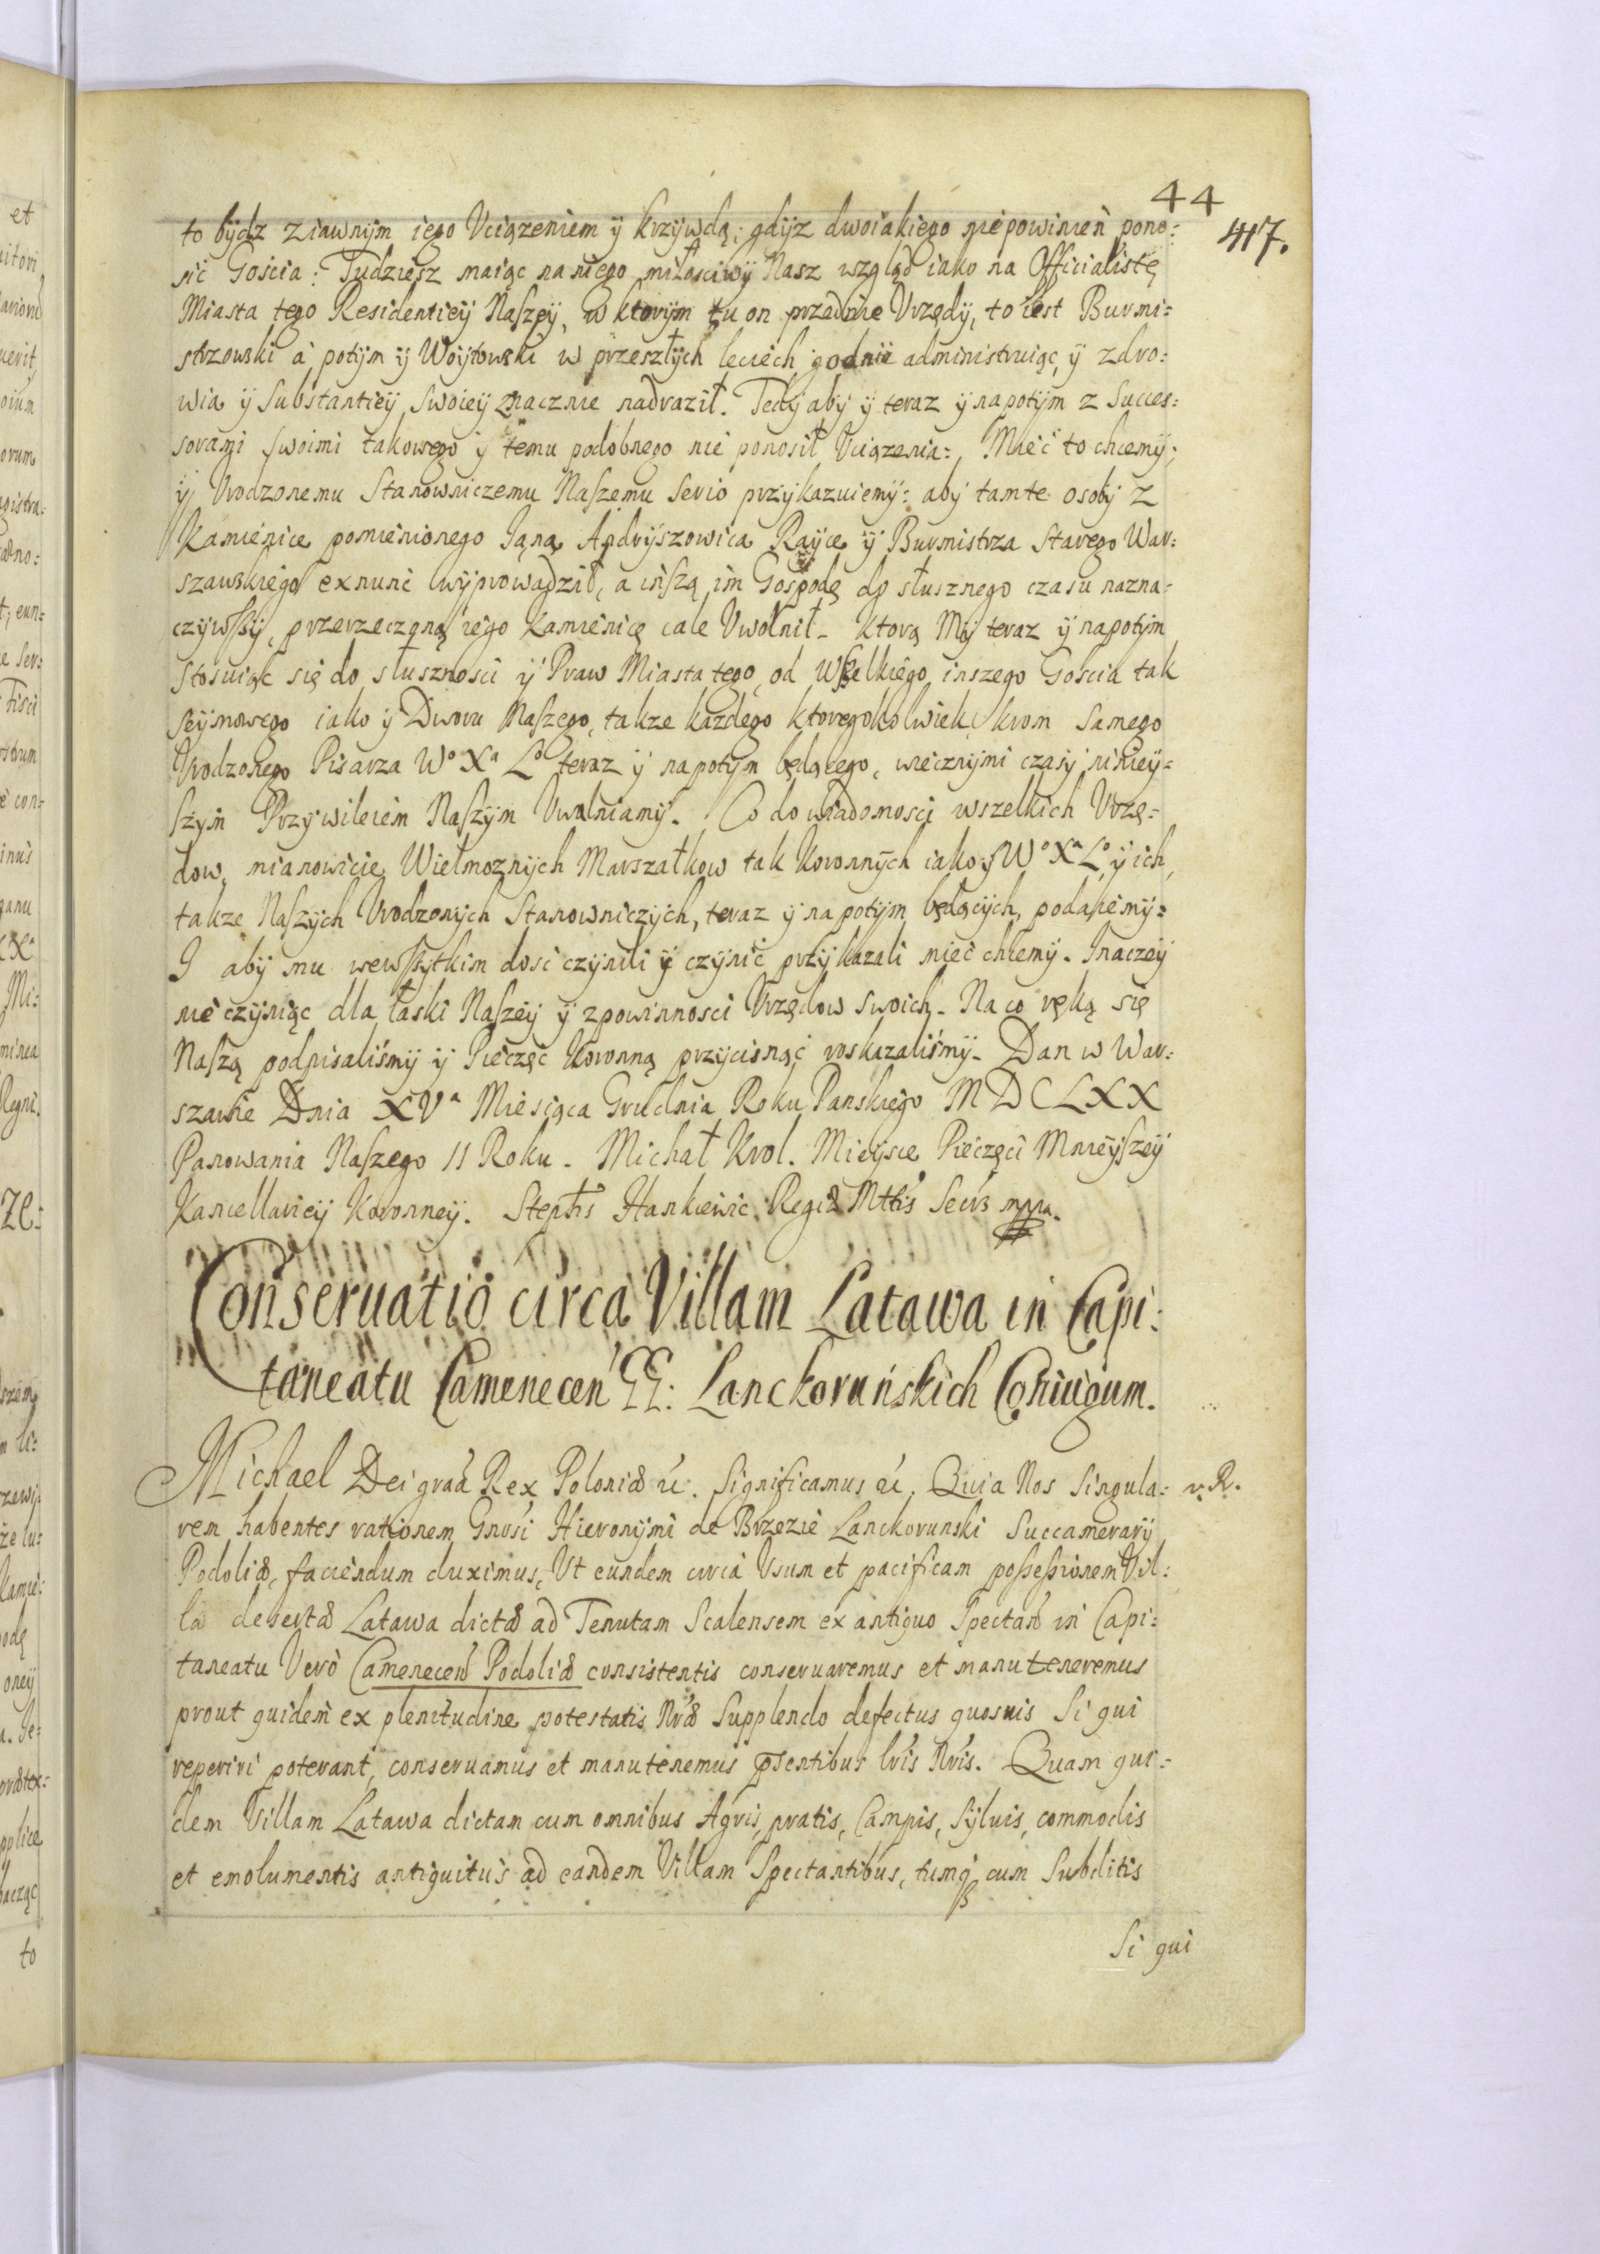 44
417.
to bydz ziawnym iego Vciązeniem ÿ krzywdą; gdyz dwoiakiego niepowinien pono:
sić Gościa: Tudziesz maiąc na niego miłosciwy Nasz wzgląd iako na Officialistę
Miasta tego Residentiey Naszey, w ktorym tu on przednie Vrzędy, to iest Burmi:
strzowski a potym ÿ Woytowski w przeszłych leciech godnie administruiąc, ÿ zdro:
wia ÿ Substantiey swoiey znacznie nadraził. Tedy aby ÿ teraz ÿ napotym z Succes:
sorami swoimi takowego ÿ temu podobnego nie ponosił Vciązenia: Mieć to chcemy;
ÿ Vrodzonemu Stanowniczemu Naszemu serio przykazuiemy: aby tamte osoby z
Kamienice pomienionego Jana Andryszowica Rayce ÿ Burmistrza Starego War:
szawskiego exnunc wyprowadził, a inszą im Gospodę do słusznego czasu nazna:
czywszy, przerzeczoną iego Kamienicę cale Vwolnił. ktorą My teraz ÿ napotym
stosuiąc się do słusznosci ÿ Praw Miasta tego, od wszelkiego inszego Goscia tak
seymowego iako ÿ Dworu Naszego, takze kazdego ktoregokolwiek, krom samego
Vrodzonego Pisarza Wo Xa Lo teraz ÿ napotym będącego, wiecznymi czasy niniey=
szym Przywileiem Naszym Vwalniamy. Co do wiadomosci wszelkich Vrzę=
dow, mianowicie Wielmoznych Marszałkow tak Koronnych iako ÿ Wo Xa Lo, ÿ ich,
takze Naszych Vrodzonych Stanowniczych, teraz ÿ napotym będących, podaiemy:
I aby mu wewszytkim dosć czynili ÿ czynić przykazali mieć chcemy. Inaczey
nie czyniąc dla łaski Naszey ÿ z powinnosci Vrzędow swoich. Na co ręką się
Naszą podpisaliśmy ÿ Pieczęć Koronną przycisnąć roskazaliśmy. Dan w War:
szawie Dnia XVa Miesiąca Grudnia Roku Panskiego MDCLXX
Panowania Naszego II Roku. Michał Krol. Mieysce Pieczęci Mnieyszey
Kancellariey Koronney. Stephs Hankiewic Regiæ Mttis Secrs mpp.
Conservatio circa Villam Latawa in Capi:
taneatu Camenecen GG: Lanckoruńskich Coniugum.
Michael Dei graa Rex Poloniæ &c. Significamus &c. Quia Nos Singula: v. R.
rem habentes rationem Gnrosi Hieronymi de Brzezie Lanckorunski Succamerary
Podoliæ, faciendum duximus, Vt eundem circa Vsum et pacificam possessionem Vil:
læ desertæ Latawa dictæ ad Tenutam Scalensem ex antiquo Spectan in Capi:
taneatu Vero Camenecen Podoliæ consistentis conservaremus et manuteneremus
prout quidem ex plenitudine potestatis Nræ Supplendo defectus quosuis Si qui
reperiri poterant, conseruamus et manutenemus psentibus lris Nris. Quam qui:
dem Villam Latawa dictam cum omnibus Agris, pratis, Campis, Syluis, commodis
et emolumentis antiquitus ad eandem Villam Spectantibus, tumq cum Subditis
Si qui